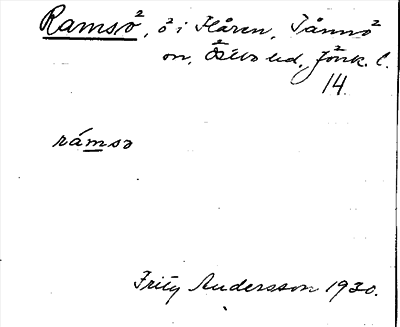 Ramsö, ö i Flåren, Tånnö
sn, Östbo hd, Jönk. l.
14.
rámsə
Fritz Andersson 1930.